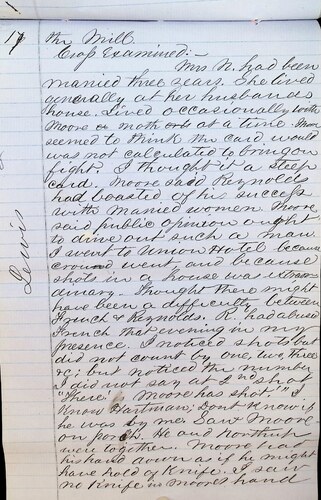 17 the Mill.
Cross Examined:-
Mrs N. had been
married three years. She lived
generally at her husbands
house. Lived occasionally with
Moore a month at a time.
seemed to think the card would
was not calculated to bring on
fight. I thought it a steep
card. Moore said Reynolds
had boasted of his success
with married women Moore
said public opinion ought
to drive out such a man.
I went to Union Hotel because
crowd went and because
shots in a house was extraor
dinary. Thought there might
have been a difficulty between
French & Reynolds. R. had abused
French that evening in my
presence. I noticed shots but
did not count by one, two, three
&c; but noticed the number
I did not say at 2nd shot
"There Moore has shot." I
Know Hartman; Dont Know if
he was by me. Saw Moore
on porch. He and
were together. Moore had
his hand down as if he might
have hold of Knife. I saw
no Knife in Moore's hand
Lewis